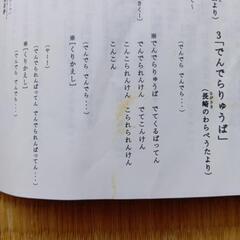 より）
3「でんでらりゅうば」
ながさき
（長崎のわらべうたより）
※でんでらりゅうば　でてくるばってん
でんでられんけん　でてこんけん
こんこられんけん　こられられんけん
こんこん
（でんでら　でんでら・・・）
※［くりかえし］
（でんでられんばってん　でんでられんばってん・・・）
（せーの）
※［くりかえし］
（さくー）